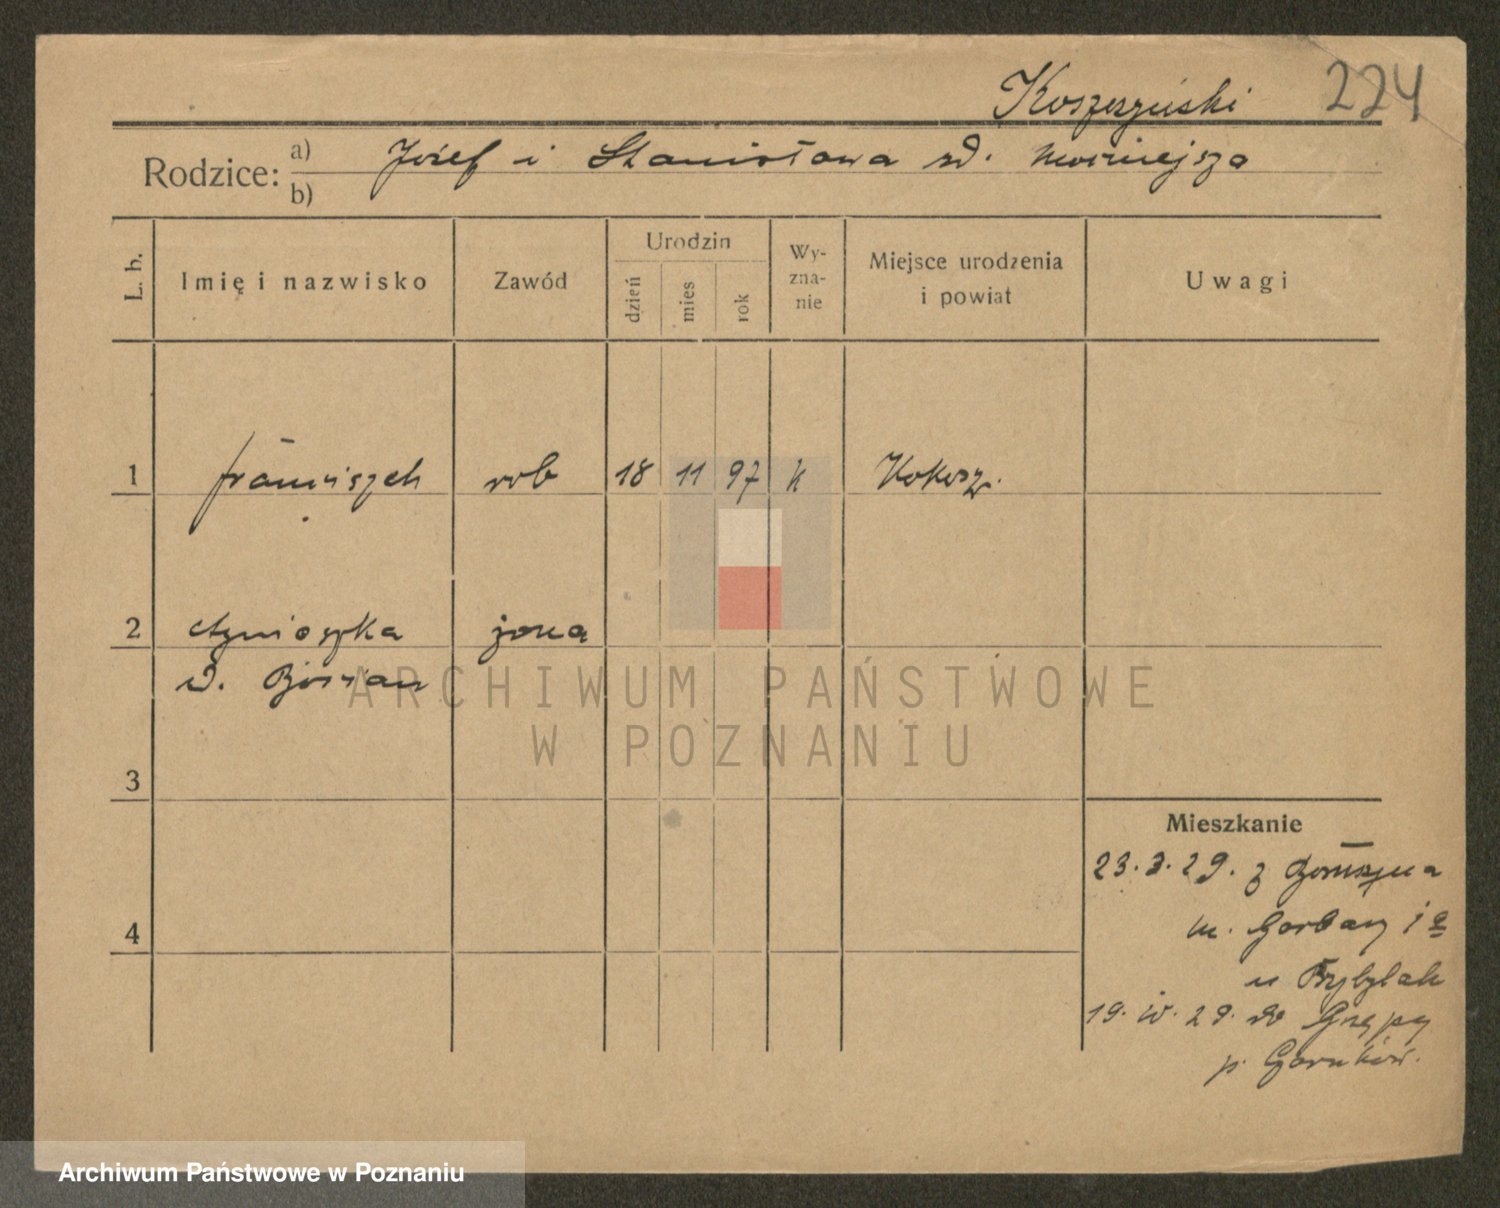 Koszczyński 224
Rodzice: a) Józef i Stanisława zd.
b)
L. b. Imię i nazwisko Zawód Urodzin dzień mies rok Wyznanie Miejsce urodzenia i powiat Uwagi
1 Franciszek rob 18 11 97 k Kokosz.
2 Agnieszka żona
d.
ARCHIWUM PAŃSTWOWE
W POZNANIU
3
Mieszkanie
23.3.29. z
m. Garbary 1a
4
u Przybylak
19.IV.29. do
p.
Archiwum Państwowe w Poznaniu